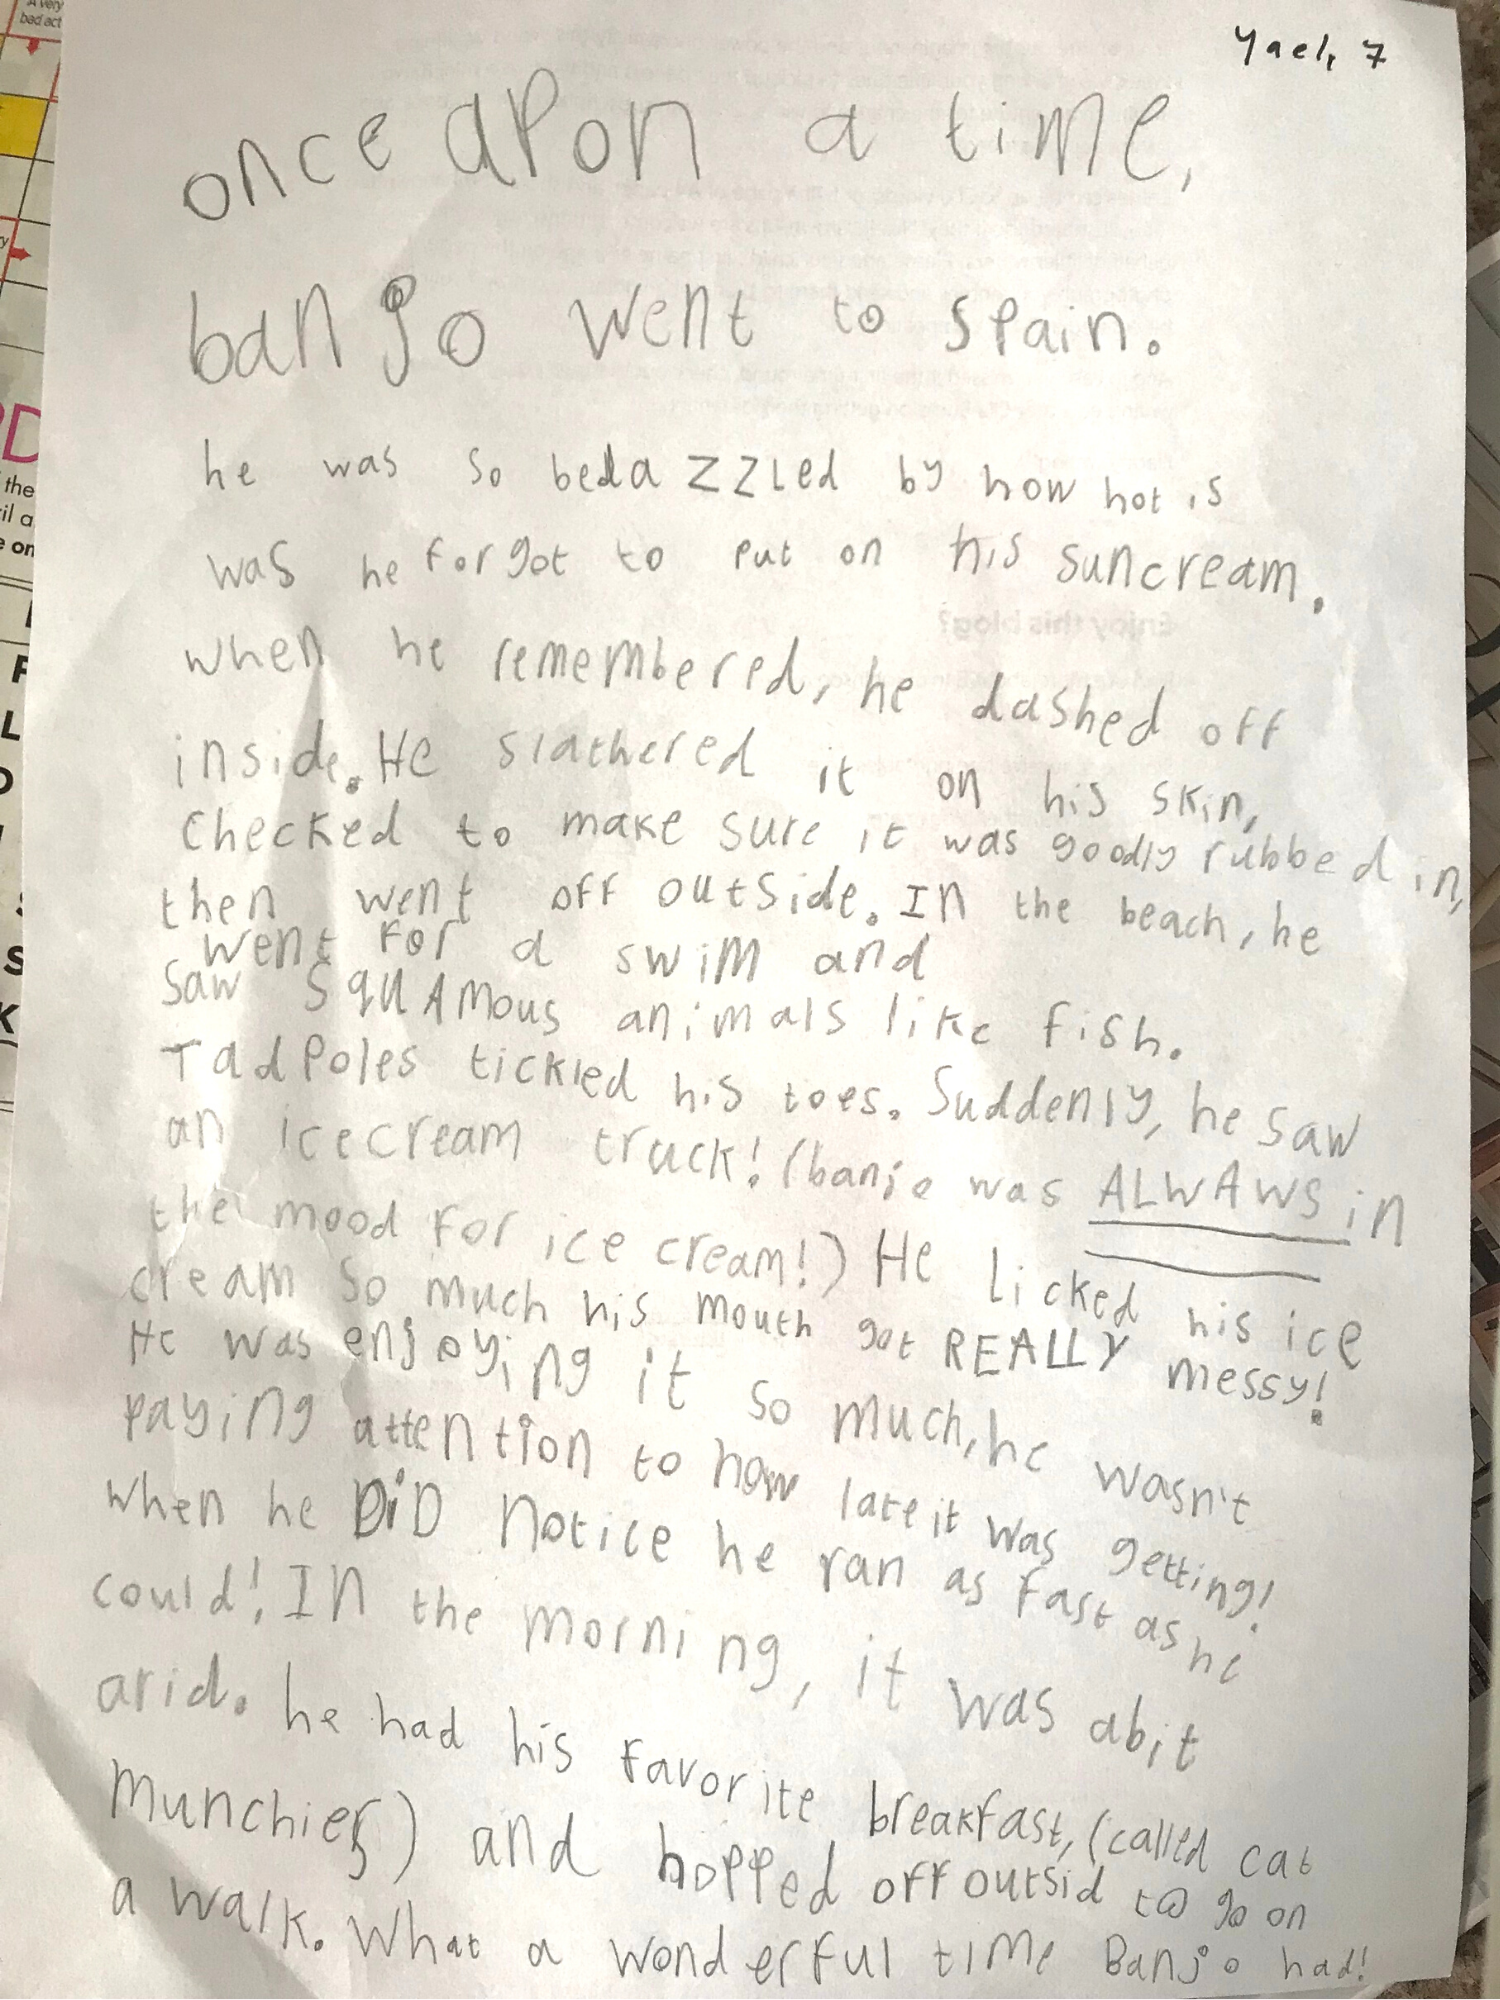 Yael, 7
once apon a time,
banjo went to spain.
he was so bedazzled by how hot is
was he forgot to put on his suncream.
when he remembered, he dashed off
inside. He slathered it on his skin,
checked to make sure it was goodly rubbed in,
then went off outside. In the beach, he
went for a swim and
saw squamous animals like fish.
Tadpoles tickled his toes. Suddenly, he saw
an icecream truck! (banjo was ALWAWS in
the mood for ice cream!) He licked his ice
cream so much his mouth got REALLY messy!
He was enjoying it so much, he wasn't
paying attention to how late it was getting!
when he DiD notice he ran as fast as he
could! In the morning, it was abit
arid. he had his favorite breakfast, (called cat
munchies) and hopped off outsid to go on
a walk. What a wonderful time Banjo had!
A very
bad act
the
Enjoy this blog?